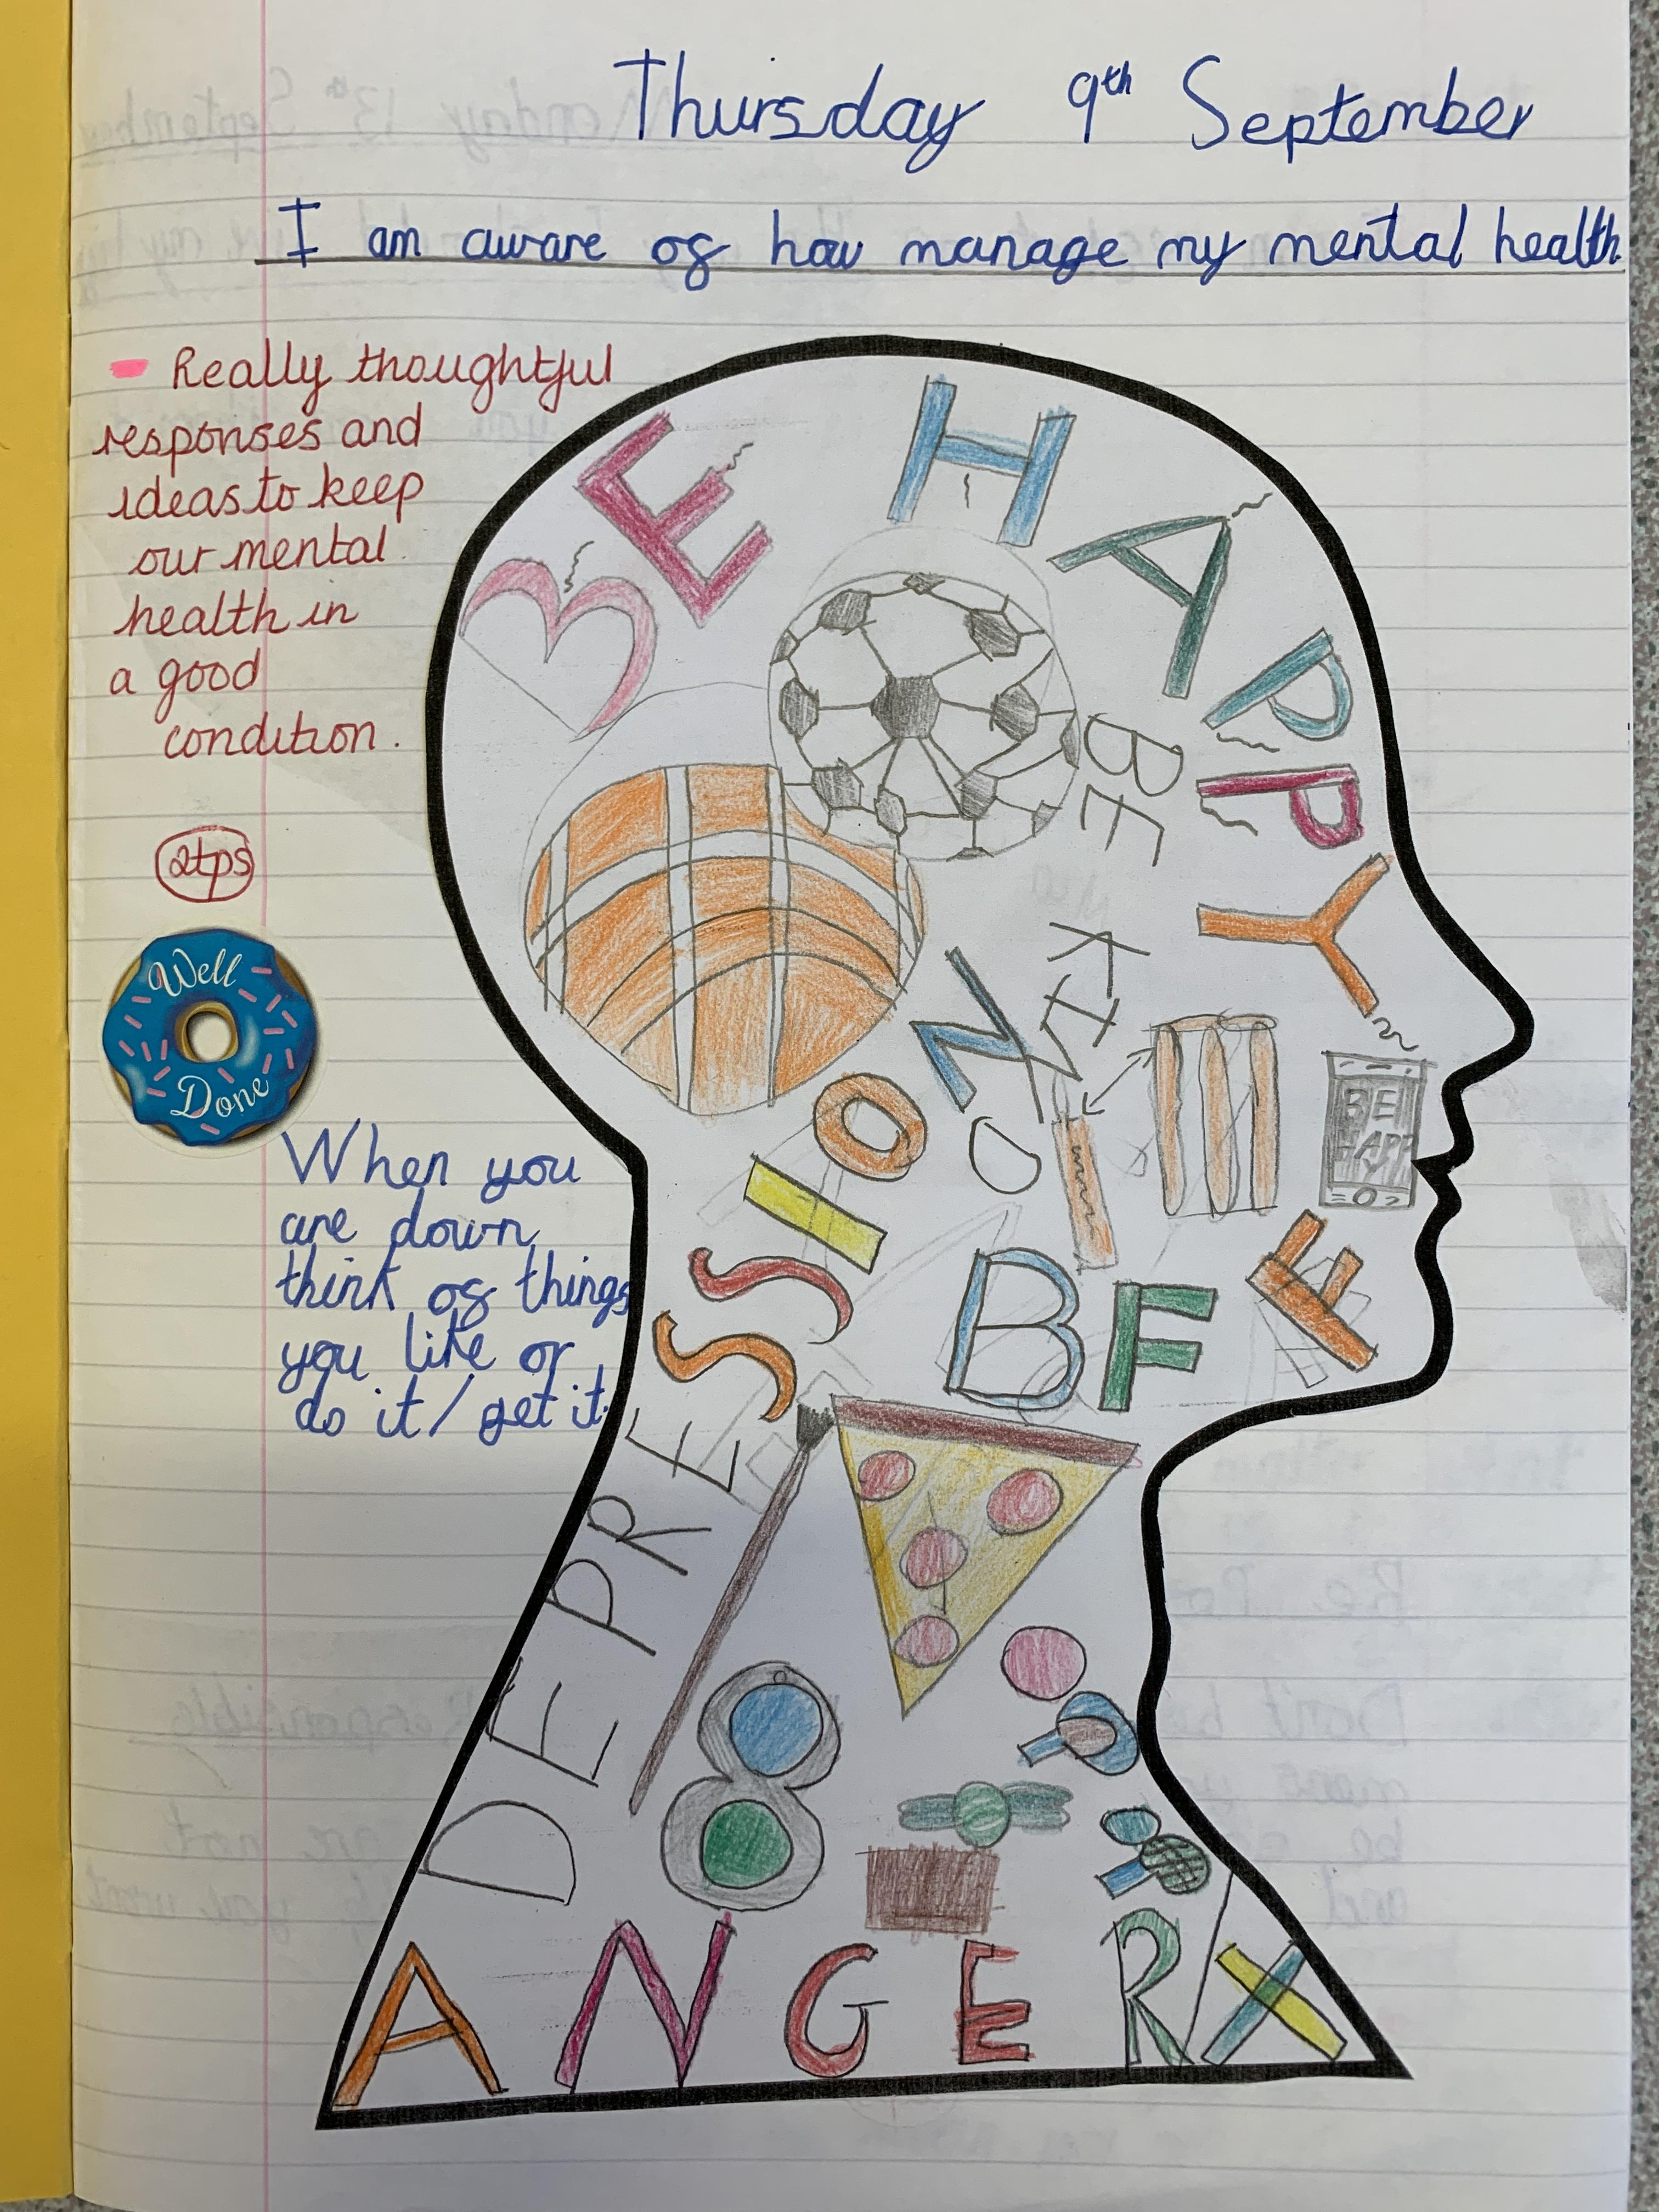 Thursday 9th September
I am aware of how manage my mental health.
- Really thoughtful
responses and
ideas to keep
our mental
health in
a good
condition.
2tps
Well
Done
When you
are down
think of things
you like or
do it/get it.
BE HAPPY
BE
KIND
BE
HAPPY
BFF
DEPRESSION
ANGER X